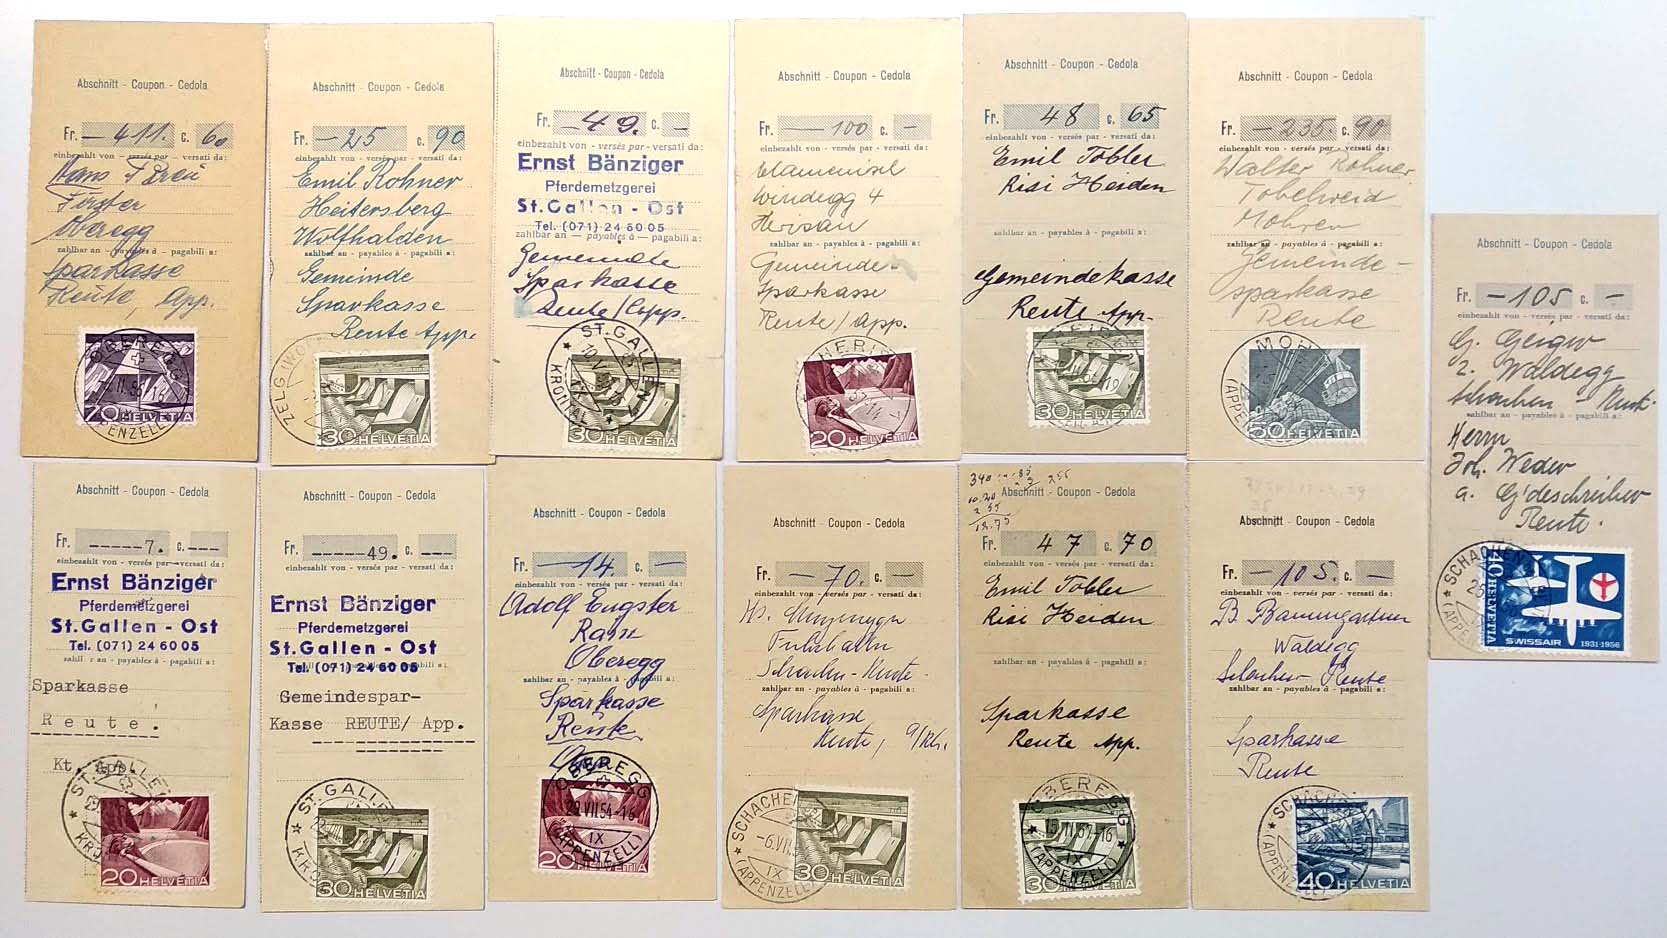 Abschnitt - Coupon - Cedola
Fr. — 411. c. 60
einbezahlt von — versés par — versati da:
Hans
Förster
Oberegg
zahlbar an - payables à - pagabili a:
Sparkasse
Reute, App.
OBEREGG
(APPENZELL)
70 HELVETIA
Abschnitt - Coupon - Cedola
Fr. — 25 c. 90
einbezahlt von - versés par - versati da:
Emil Rohner
Heitersberg
Wolfhalden
zahlbar an - payables à - pagabili a:
Gemeinde
Sparkasse
Reute App.
ZELG (WO
30 HELVETIA
Abschnitt - Coupon - Cedola
Fr. — 49. c. —
einbezahlt von - versés par - versati da:
Ernst Bänziger
Pferdemetzgerei
St.Gallen - Ost
Tel. (071) 24 60 05
zahlbar an — payables à — pagabili a:
Gemeinde
Sparkasse
Reute/App.
ST. GALLEN
KRONTAL
30 HELVETIA
Abschnitt - Coupon - Cedola
Fr. — 100 c. —
einbezahlt von - versés par - versati da:
Windegg 4
Herisau
zahlbar an - payables à - pagabili a:
Gemeinde-
Sparkasse
Reute / App.
HERI
20 HELVETIA
Abschnitt - Coupon - Cedola
Fr. 48 c. 65
einbezahlt von - versés par - versati da:
Emil Tobler
Risi Heiden
zahlbar an - payables à - pagabili a:
Gemeindekasse
Reute App.
30 HELVETIA
Abschnitt - Coupon - Cedola
Fr. — 235. c. 90
einbezahlt von - versés par - versati da:
Walter Rohner
Tobelweid
Mohren
zahlbar an - payables à - pagabili a:
Gemeinde-
sparkasse
Reute
MOH
(APPEN
50 HELVETIA
Abschnitt - Coupon - Cedola
Fr. — 105 c. —
einbezahlt von - versés par - versati da:
G. Geiger
z. Waldegg
Schachen - Reute.
zahlbar an - payables à - pagabili a:
Herrn
Joh. Weder
a. G'deschreiber
Reute.
SCHACHEN
(APPEN
40 HELVETIA
SWISSAIR 1931-1956
Abschnitt - Coupon - Cedola
Fr. -----7. c. ---
einbezahlt von - versés par - versati da:
Ernst Bänziger
Pferdemetzgerei
St.Gallen - Ost
Tel. (071) 24 60 05
zahlbar an - payables à - pagabili a:
Sparkasse
Reute.
Kt. App.
ST. GALLE
KRO
20 HELVETIA
Abschnitt - Coupon - Cedola
Fr. -----49. c. ---
einbezahlt von - versés par - versati da:
Ernst Bänziger
Pferdemetzgerei
St.Gallen - Ost
Tel. (071) 24 60 05
Gemeindespar-
Kasse REUTE/ App.
ST. GALLE
KRO
30 HELVETIA
Abschnitt - Coupon - Cedola
Fr. — 14 c. —
einbezahlt von - versés par - versati da:
Adolf Eugster
Oberegg
zahlbar an - payables à - pagabili a:
Sparkasse
Reute
OBEREGG
29.VII.54-16
IX
(APPENZELL)
20 HELVETIA
Abschnitt - Coupon - Cedola
Fr. — 70. c. —
einbezahlt von - versés par - versati da:
Schachen - Reute.
zahlbar an - payables à - pagabili a:
Sparkasse
Reute,
SCHACHEN
-6.VII.5
IX
(APPENZELL)
30 HELVETIA
Abschnitt - Coupon - Cedola
Fr. 47 c. 70
einbezahlt von - versés par - versati da:
Emil Tobler
Risi Heiden
zahlbar an - payables à - pagabili a:
Sparkasse
Reute App.
OBEREGG
IX
(APPENZELL)
30 HELVETIA
Abschnitt - Coupon - Cedola
Fr. — 105. c. —
einbezahlt von - versés par - versati da:
B. Baumgartner
Waldegg
Schachen - Reute
zahlbar an - payables à - pagabili a:
Sparkasse
Reute
SCHACHEN
(APPENZELL)
40 HELVETIA